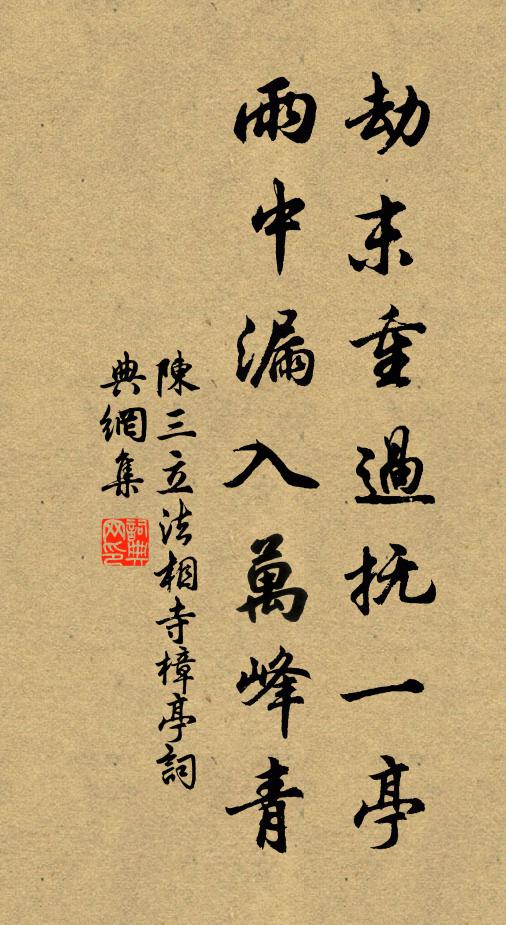 劫末重過抚一亭
雨中漏入萬峰青
陳三立法相寺樟亭詞
典網集
詞典
网印